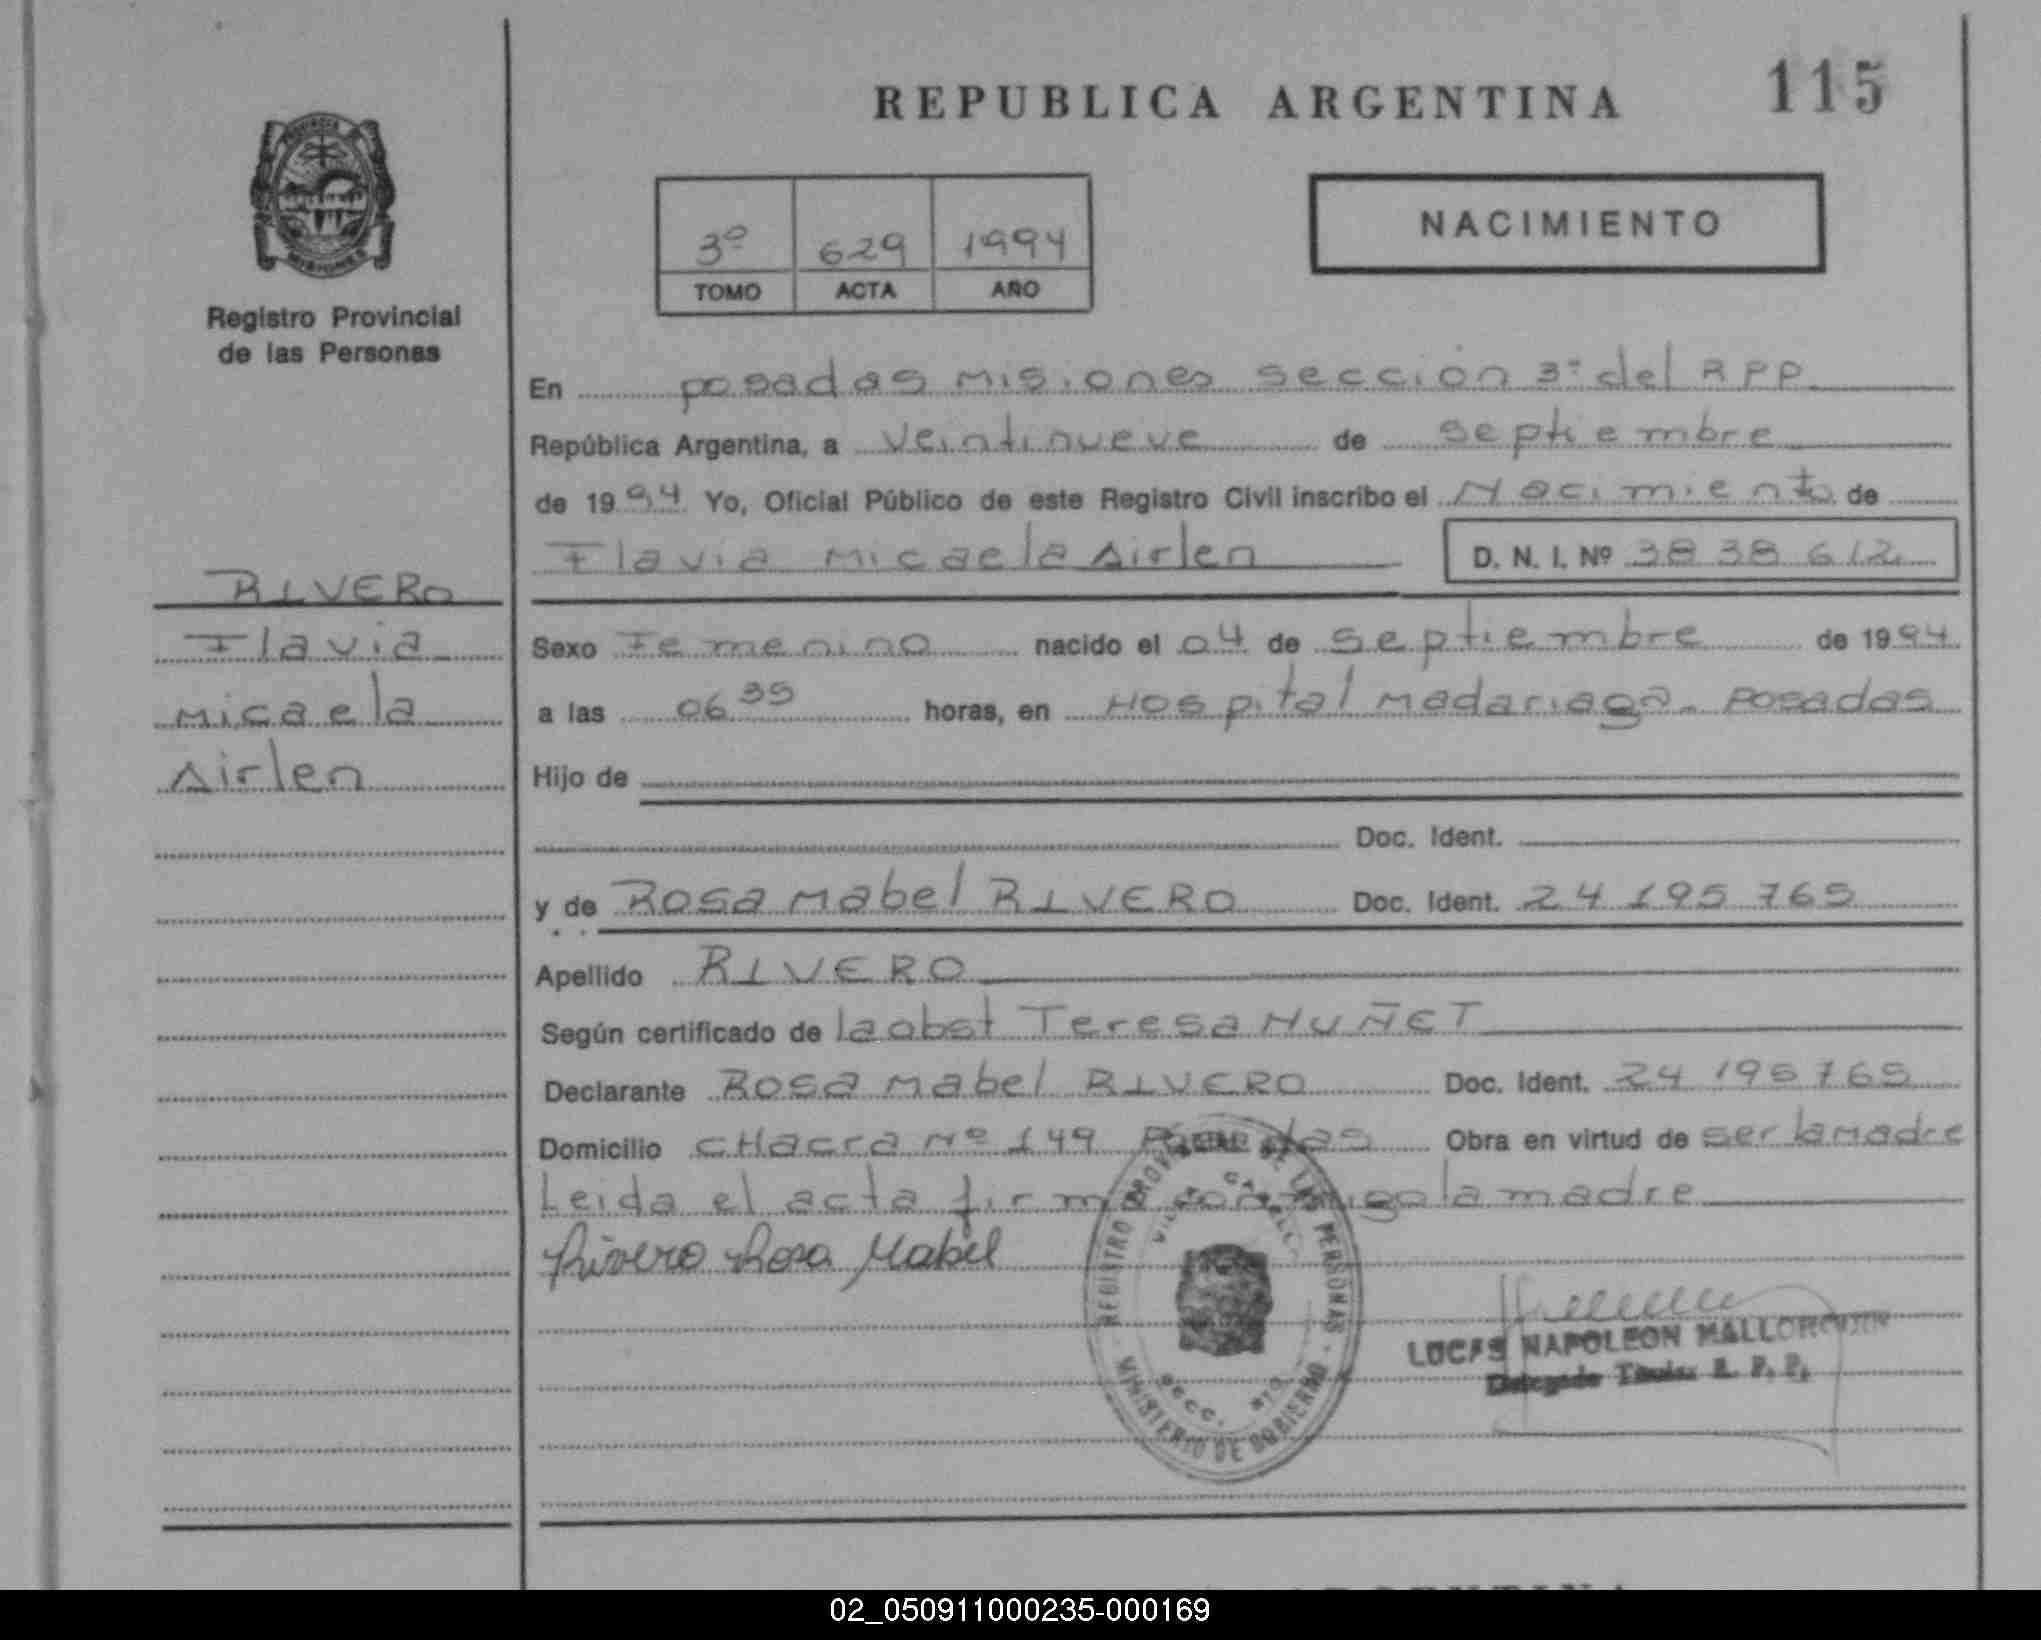 REPUBLICA ARGENTINA
115
NACIMIENTO
3º 629 1994
TOMO ACTA AÑO
Registro Provincial
de las Personas
RIVERO
Flavia
Micaela
Airlen
En posadas Misiones sección 3º del RPP
República Argentina, a veintinueve de septiembre
de 1994 Yo, Oficial Público de este Registro Civil inscribo el Nacimiento de
Flavia Micaela Airlen D. N. I. Nº 38 38 612
Sexo Femenino nacido el 04 de septiembre de 1994
a las 06 35 horas, en Hospital Madariaga - Posadas
Hijo de
Doc. Ident.
y de Rosa Mabel RIVERO Doc. Ident. 24 195 765
Apellido RIVERO
Según certificado de la obst Teresa NUÑET
Declarante Rosa Mabel RIVERO Doc. Ident. 24 195 765
Domicilio CHacra Nº 149 Posadas Obra en virtud de ser la madre
Leida el acta firma conmigo la madre
Rivero Rosa Mabel
REGISTRO PROVINCIAL DE LAS PERSONAS
MINISTERIO DE GOBIERNO
LUCAS NAPOLEON
Delegado Titular R. P. P.
02_050911000235-000169